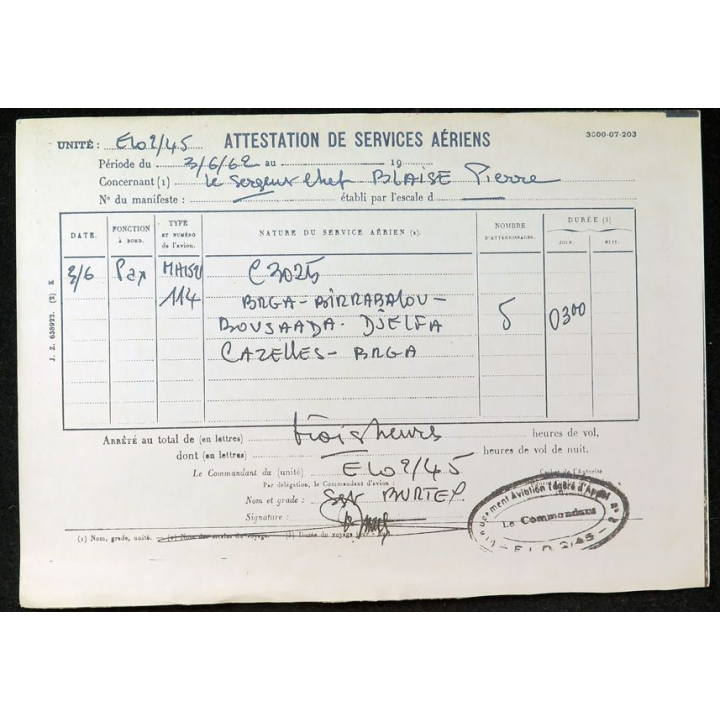 3000-07-203
UNITÉ : ELO 2/45 ATTESTATION DE SERVICES AÉRIENS
Période du 3/6/62 au 19
Concernant (1) le Sergent Chef BLAISE Pierre
N° du manifeste : établi par l'escale d
DATE. FONCTION à BORD. TYPE ET NUMÉRO de l'avion. NATURE DU SERVICE AÉRIEN (2). NOMBRE D'ATTERRISSAGES. DURÉE (3)
JOUR. NUIT.
3/6 Pax 114 C3025 5 0300
BRGA - BIRRABALOU -
BOUSAADA - DJELFA
CAZELLES - BRGA
J. Z. 638922. (2) K
ARRÊTÉ au total de (en lettres) trois heures heures de vol,
dont (en lettres) heures de vol de nuit.
Le Commandant du (unité) ELO 2/45
Par délégation, le Commandant d'avion :
Cachet de l'Autorité
Nom et grade :
Signature :
Groupement Aviation Légère d'Appui n° 2
Le Commandant
ELO 2/45
(1) Nom, grade, unité. (3) Durée du voyage